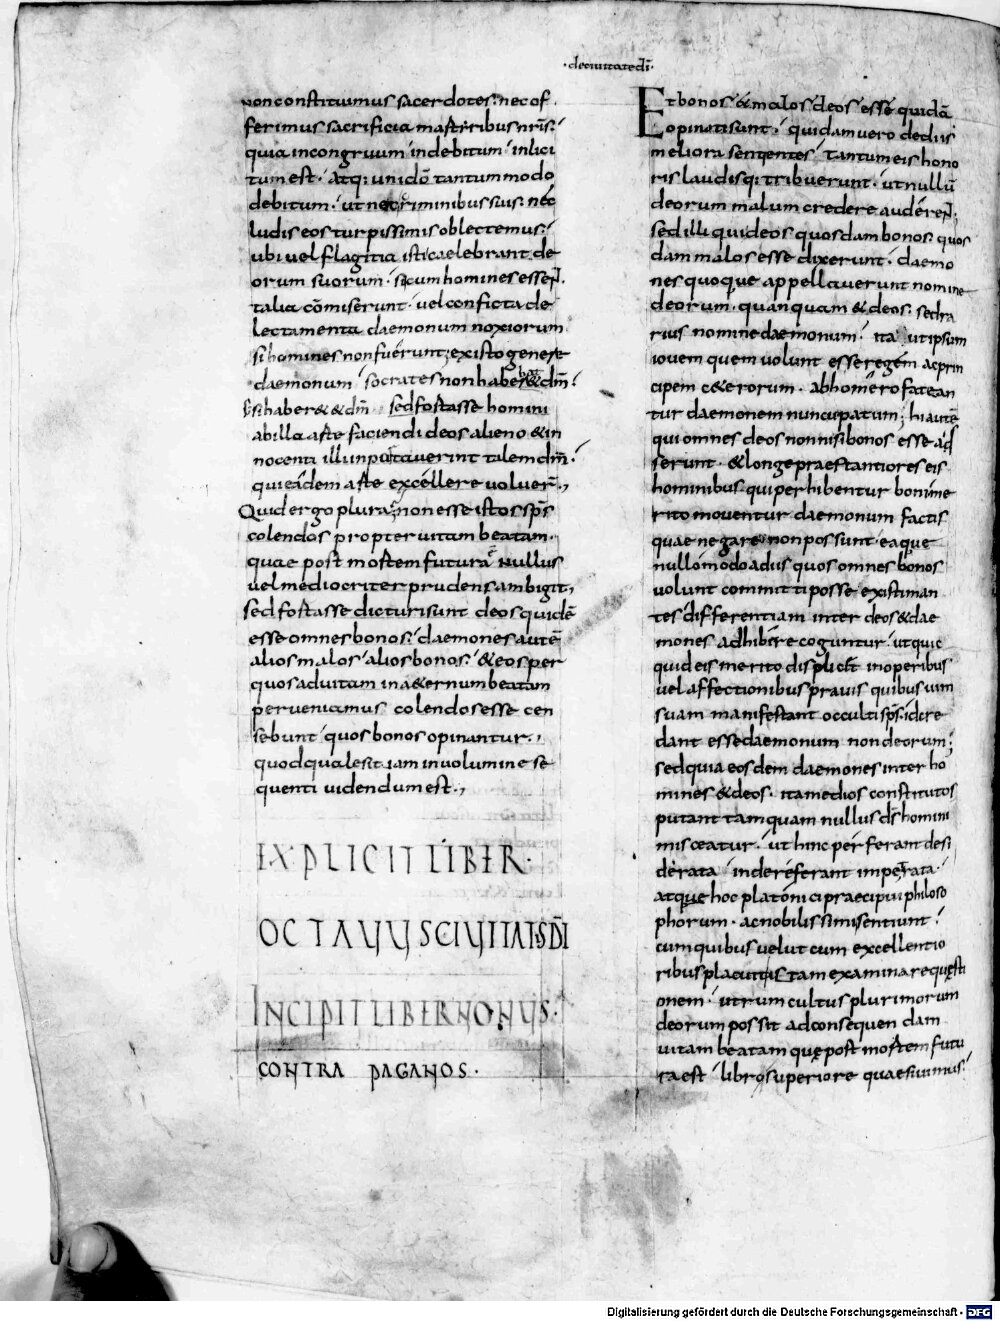 ·deciuitatedi·
nonconstituimus sacerdotes; nec of
ferimus sacrificia martiribus nris;
quia incongruum indebitum inlici
tum est · atq; uni dō tantummodo
debitum · ut nec criminibus suis · nec
ludis eos turpissimis oblectemus;
ubi uel flagitia isti caelebrant de
orum suorum · si cum homines essent
talia cōmiserunt · uel conficta de
lectamenta daemonum noxiorum
si homines non fuerunt; ex isto genere
daemonum socrates non haber& dm̄;
si haber& dm̄ sed fortasse homini
ab illa arte faciendi deos alieno & in
nocenti illi inportauerint talem dm̄;
qui eadem arte excellere uoluerunt;
Quid ergo plura; non esse istos sps
colendos propter uitam beatam·
quae post mortem futura nullus
uel mediocriter prudens ambigit;
sed fortasse dicturi sunt deos quidē
esse omnes bonos; daemones autē
alios malos · alios bonos; & eos per
quos ad uitam in a&ernum beatam
perueniamus colendos esse cen
sebunt quos bonos opinantur;
quod quale sit iam in uolumine se
quenti uidendum est;
EXPLICIT LIBER·
OCTAVUS CIVITATIS DĪ
INCIPIT LIBER NONUS·
CONTRA PAGANOS·
Et bonos & malos deos esse quidā
opinati sunt · quidam uero de diis
meliora sentientes tantum eis hono
ris laudisq; tribuerunt · ut nullū
deorum malum credere auderent
sed illi qui deos quosdam bonos · quos
dam malos esse dixerunt · daemo
nes quoque appellauerunt nomine
deorum · quanquam & deos; sed ra
rius nomine daemonum · ita ut ipsum
iouem quem uolunt esse regem ac prin
cipem c&erorum · ab homero fatean
tur daemonem nuncupatum; hi autē
qui omnes deos non nisi bonos esse ad
serunt · & longe praestantiores eis
hominibus · qui perhibentur boni me
rito mouentur daemonum factis
quae negare non possunt · eaque
nullo modo a diis quos omnes bonos
uolunt committi posse existiman
tes differentiam inter deos & dae
mones adhibere coguntur · ut quic
quid eis merito displicet in operibus
uel affectionibus prauis quibus uim
suam manifestant occulti sps · id cre
dant esse daemonum non deorum;
sed quia eosdem daemones inter ho
mines & deos · ita medios constitutos
putant tamquam nullus ds homini
misceatur · ut hinc perferant desi
derata inde referant imperata ·
atque hoc platonici praecipui philoso
phorum · ac nobilissimi sentiunt;
cum quibus uelut cum excellentio
ribus placuit istam examinare quęsti
onem · utrum cultus plurimorum
deorum possit ad consequendam
uitam beatam quę post mortem futu
ra est libro superiore quaesiuimus;
Digitalisierung gefördert durch die Deutsche Forschungsgemeinschaft - DFG